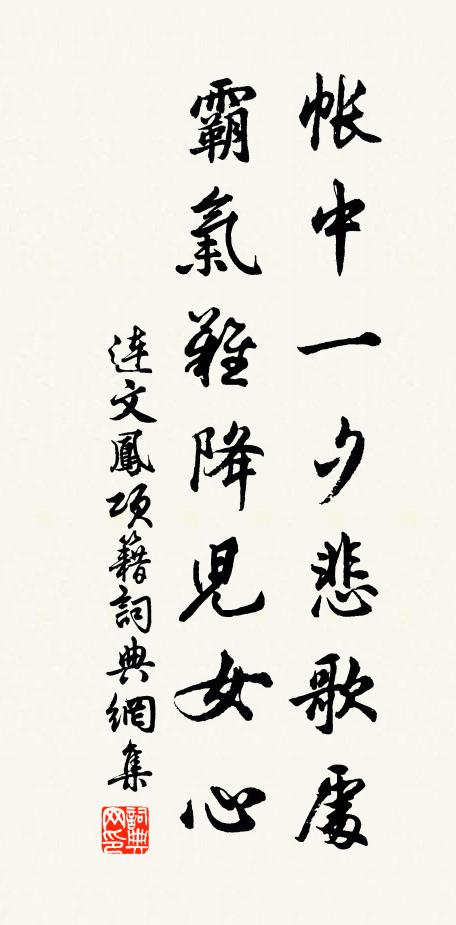 帐中一夕悲歌處
霸氣難降兒女心
连文鳳項籍詞典網集
詞典网印